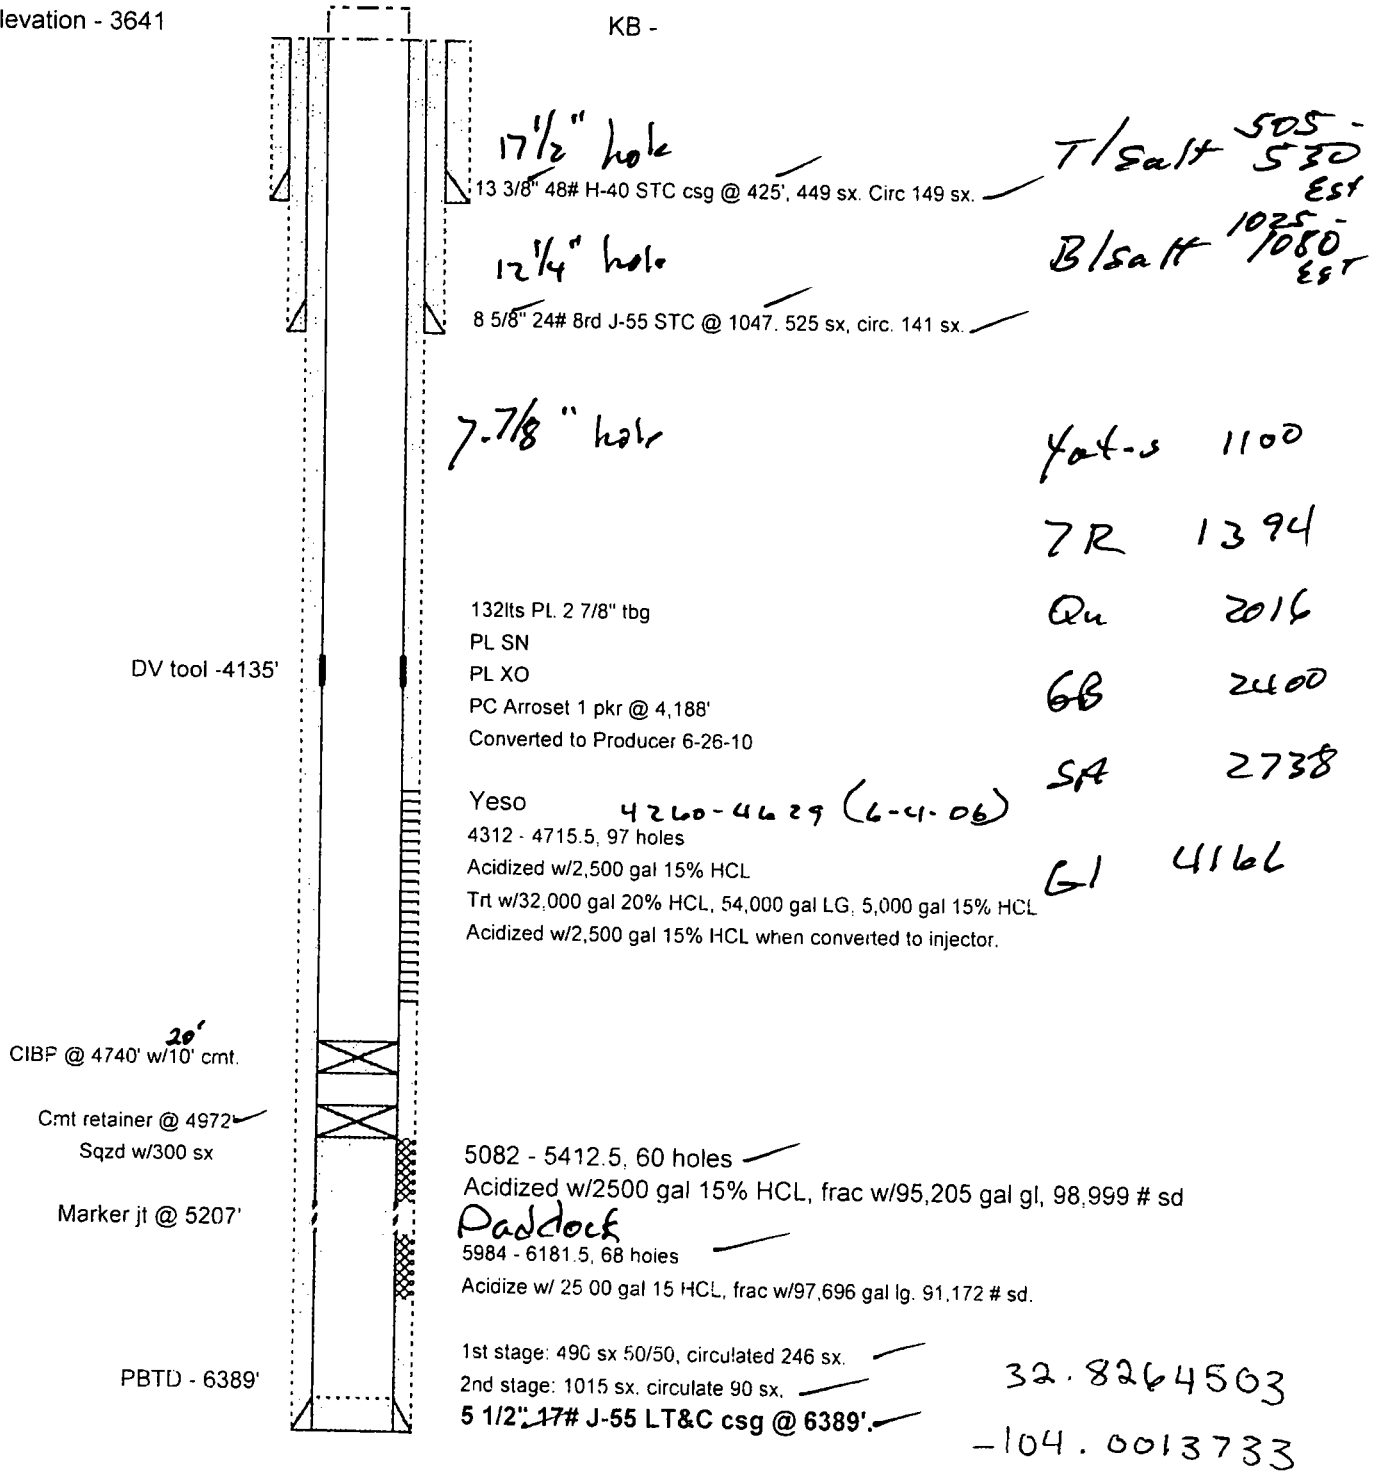 levation - 3641
KB -
17 1/2" hole
13 3/8" 48# H-40 STC csg @ 425', 449 sx. Circ 149 sx.
T/Salt 505 - 530 Est
12 1/4" hole
B/Salt 1025 - 1080 EST
8 5/8" 24# 8rd J-55 STC @ 1047. 525 sx, circ. 141 sx.
7-7/8" hole
Yates 1100
7R 1394
132lts PL. 2 7/8" tbg
Qu 2016
PL SN
DV tool -4135'
PL XO
GB 2400
PC Arroset 1 pkr @ 4,188'
Converted to Producer 6-26-10
SA 2738
Yeso 4260-4629 (6-4-06)
4312 - 4715.5, 97 holes
Acidized w/2,500 gal 15% HCL
Gl 4166
Trt w/32,000 gal 20% HCL, 54,000 gal LG, 5,000 gal 15% HCL
Acidized w/2,500 gal 15% HCL when converted to injector.
20'
CIBP @ 4740' w/10' cmt.
Cmt retainer @ 4972'
Sqzd w/300 sx
5082 - 5412.5, 60 holes
Acidized w/2500 gal 15% HCL, frac w/95,205 gal gl, 98,999 # sd
Marker jt @ 5207'
Paddock
5984 - 6181.5, 68 holes
Acidize w/ 25 00 gal 15 HCL, frac w/97,696 gal lg. 91,172 # sd.
1st stage: 490 sx 50/50, circulated 246 sx.
PBTD - 6389'
2nd stage: 1015 sx. circulate 90 sx.
32.8264503
5 1/2" 17# J-55 LT&C csg @ 6389'.
-104.0013733